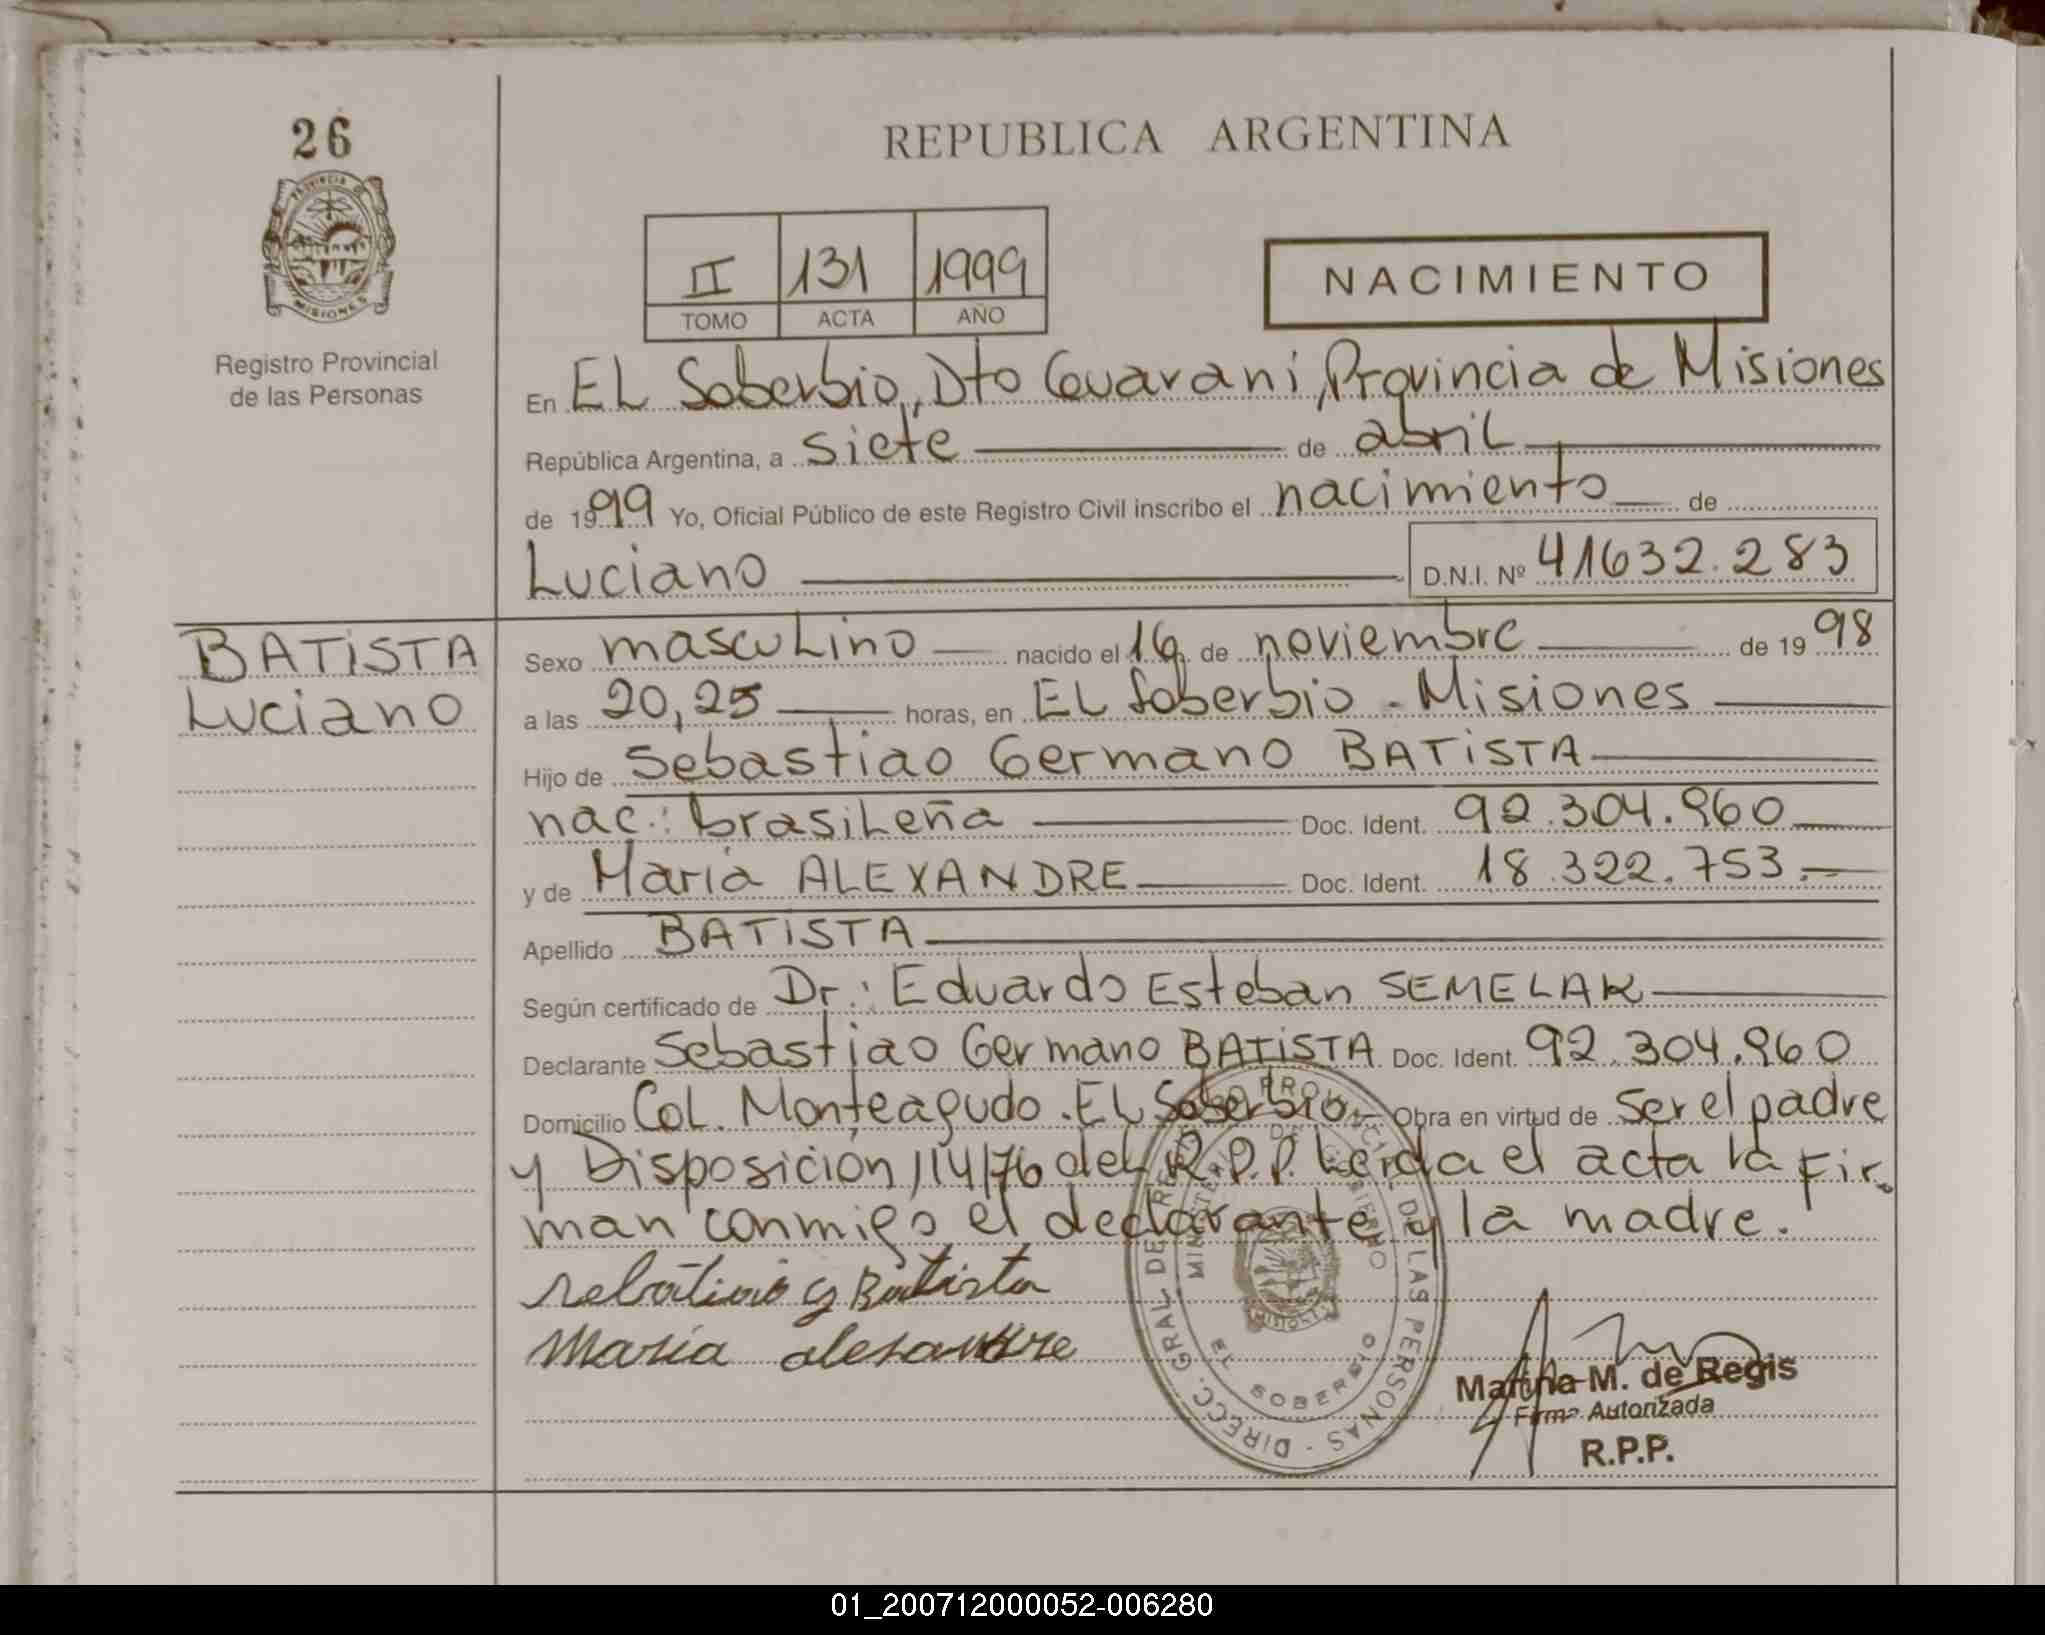 26
PROVINCIA DE
MISIONES
Registro Provincial
de las Personas
REPUBLICA ARGENTINA
II 131 1999
TOMO ACTA AÑO
NACIMIENTO
En EL Soberbio, Dto Guarani, Provincia de Misiones
República Argentina, a siete de abril
de 1999 Yo, Oficial Público de este Registro Civil inscribo el nacimiento de
Luciano D.N.I. Nº 41632.283
BATISTA
Luciano
Sexo masculino nacido el 16 de noviembre de 1998
a las 20,25 horas, en EL Soberbio - Misiones
Hijo de Sebastiao Germano BATISTA
nac: brasileña Doc. Ident. 92.304.960
y de Maria ALEXANDRE Doc. Ident. 18.322.753.-
Apellido BATISTA
Según certificado de Dr: Eduardo Esteban SEMELAK
Declarante Sebastiao Germano BATISTA Doc. Ident. 92.304.960
Domicilio Col. Monteagudo. EL Soberbio.- Obra en virtud de ser el padre
y Disposición 114/76 del R.P.P. Leida el acta la fir-
man conmigo el declarante y la madre.
G Batista
Maria alesandre
DIRECC. GRAL. DE REGISTRO PROVINCIAL DE LAS PERSONAS
MINISTERIO DE GOBIERNO
MISIONES
EL SOBERBIO
Marina M. de Regis
Firma Autorizada
R.P.P.
01_200712000052-006280